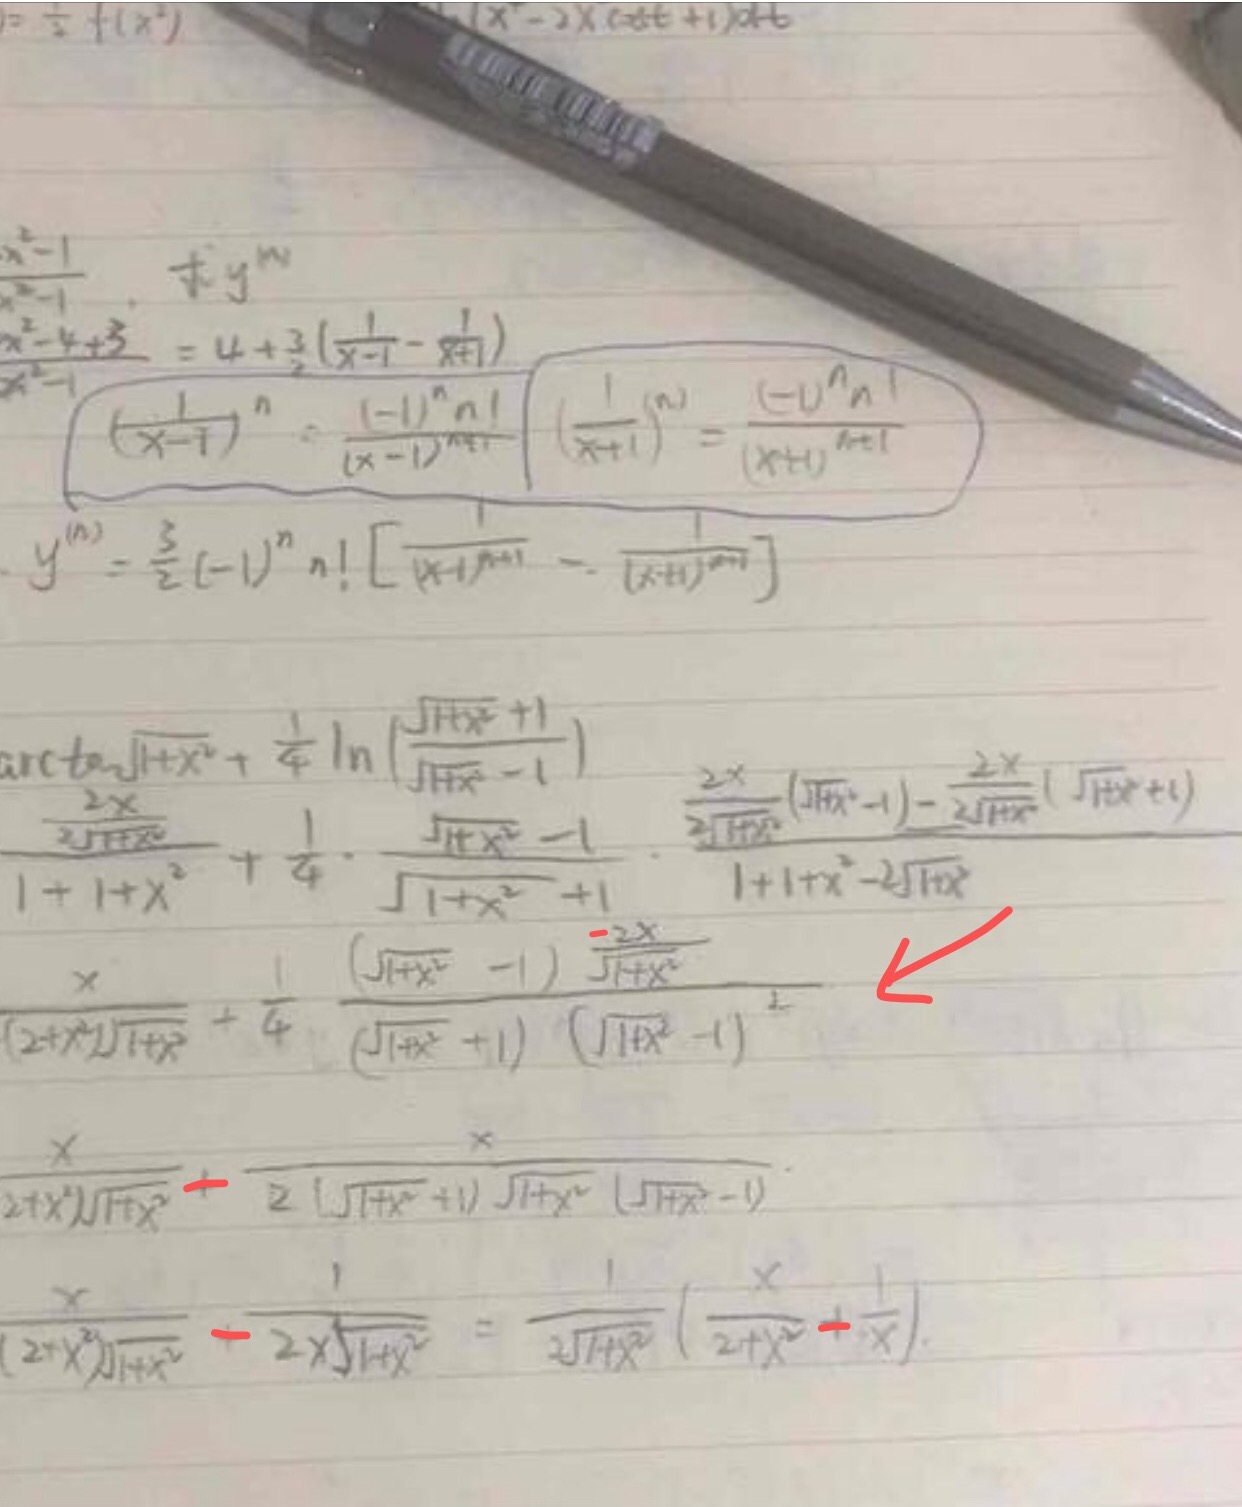 )= 1/2 f(x²) (x²-2xcost+1)dt
x²-1 / x²-1 , 求 y^(n)
x²-4+3 / x²-1 = 4 + 3/2 (1/(x-1) - 1/(x+1))
(1/(x-1))^n = (-1)^n n! / (x-1)^(n+1) (1/(x+1))^(n) = (-1)^n n! / (x+1)^(n+1)
y^(n) = 3/2 (-1)^n n! [1/(x-1)^(n+1) - 1/(x+1)^(n+1)]
arctan√(1+x²) + 1/4 ln((√(1+x²)+1)/(√(1+x²)-1))
(2x/(2√(1+x²)))/(1+1+x²) + 1/4 · (√(1+x²)-1)/(√(1+x²)+1) · (2x/(2√(1+x²)) (√(1+x²)-1) - 2x/(2√(1+x²)) (√(1+x²)+1))/(1+1+x²-2√(1+x²))
x/((2+x²)√(1+x²)) + 1/4 (√(1+x²)-1) (-2x/√(1+x²)) / ((√(1+x²)+1) (√(1+x²)-1)²)
x/((2+x²)√(1+x²)) - x/(2(√(1+x²)+1)√(1+x²)(√(1+x²)-1))
x/((2+x²)√(1+x²)) - 1/(2x√(1+x²)) = 1/(2√(1+x²)) (x/(2+x²) - 1/x).